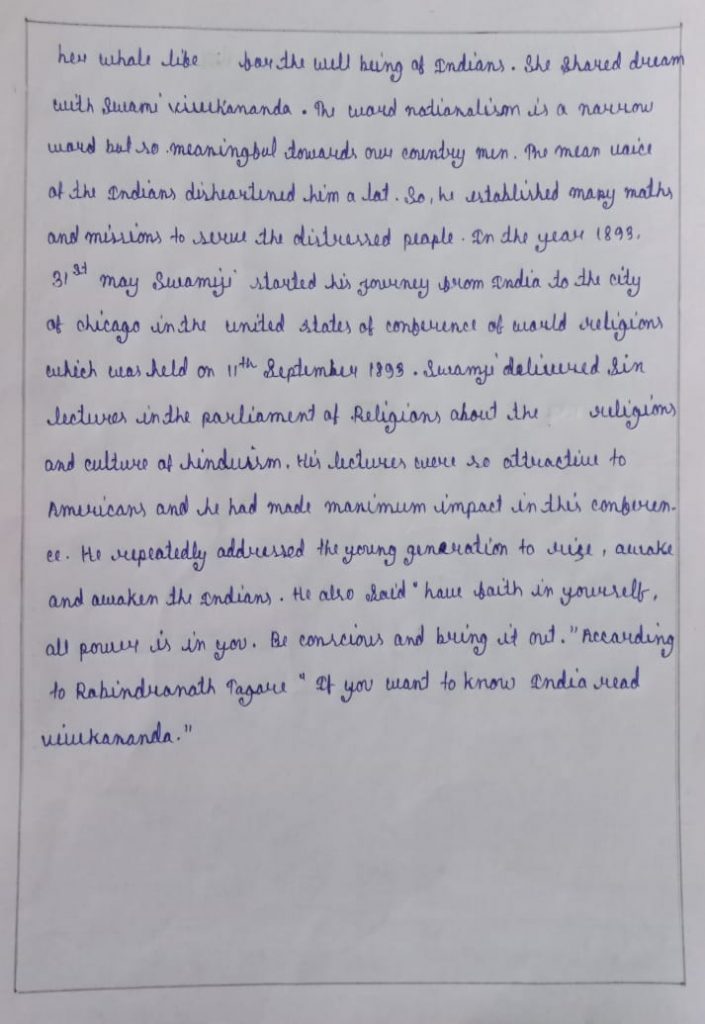 her whole life for the well being of Indians. She shared dream
with Swami vivekananda. The word nationalism is a narrow
word but so meaningful towards our country men. The mean voice
of the Indians disheartened him a lot. So, he established many maths
and missions to serve the distressed people. In the year 1893.
31st may Swamiji started his journey from India to the city
of chicago in the united states of conference of world religions
which was held on 11th September 1893. Swamji delivered Six
lectures in the parliament of Religions about the religions
and culture of hinduism. His lectures were so attractive to
Americans and he had made maximum impact in this conferen-
ce. He repeatedly addressed the young generation to rise, awake
and awaken the Indians. He also said "have faith in yourself,
all power is in you. Be conscious and bring it out." According
to Rabindranath Tagore "If you want to know India read
vivekananda."